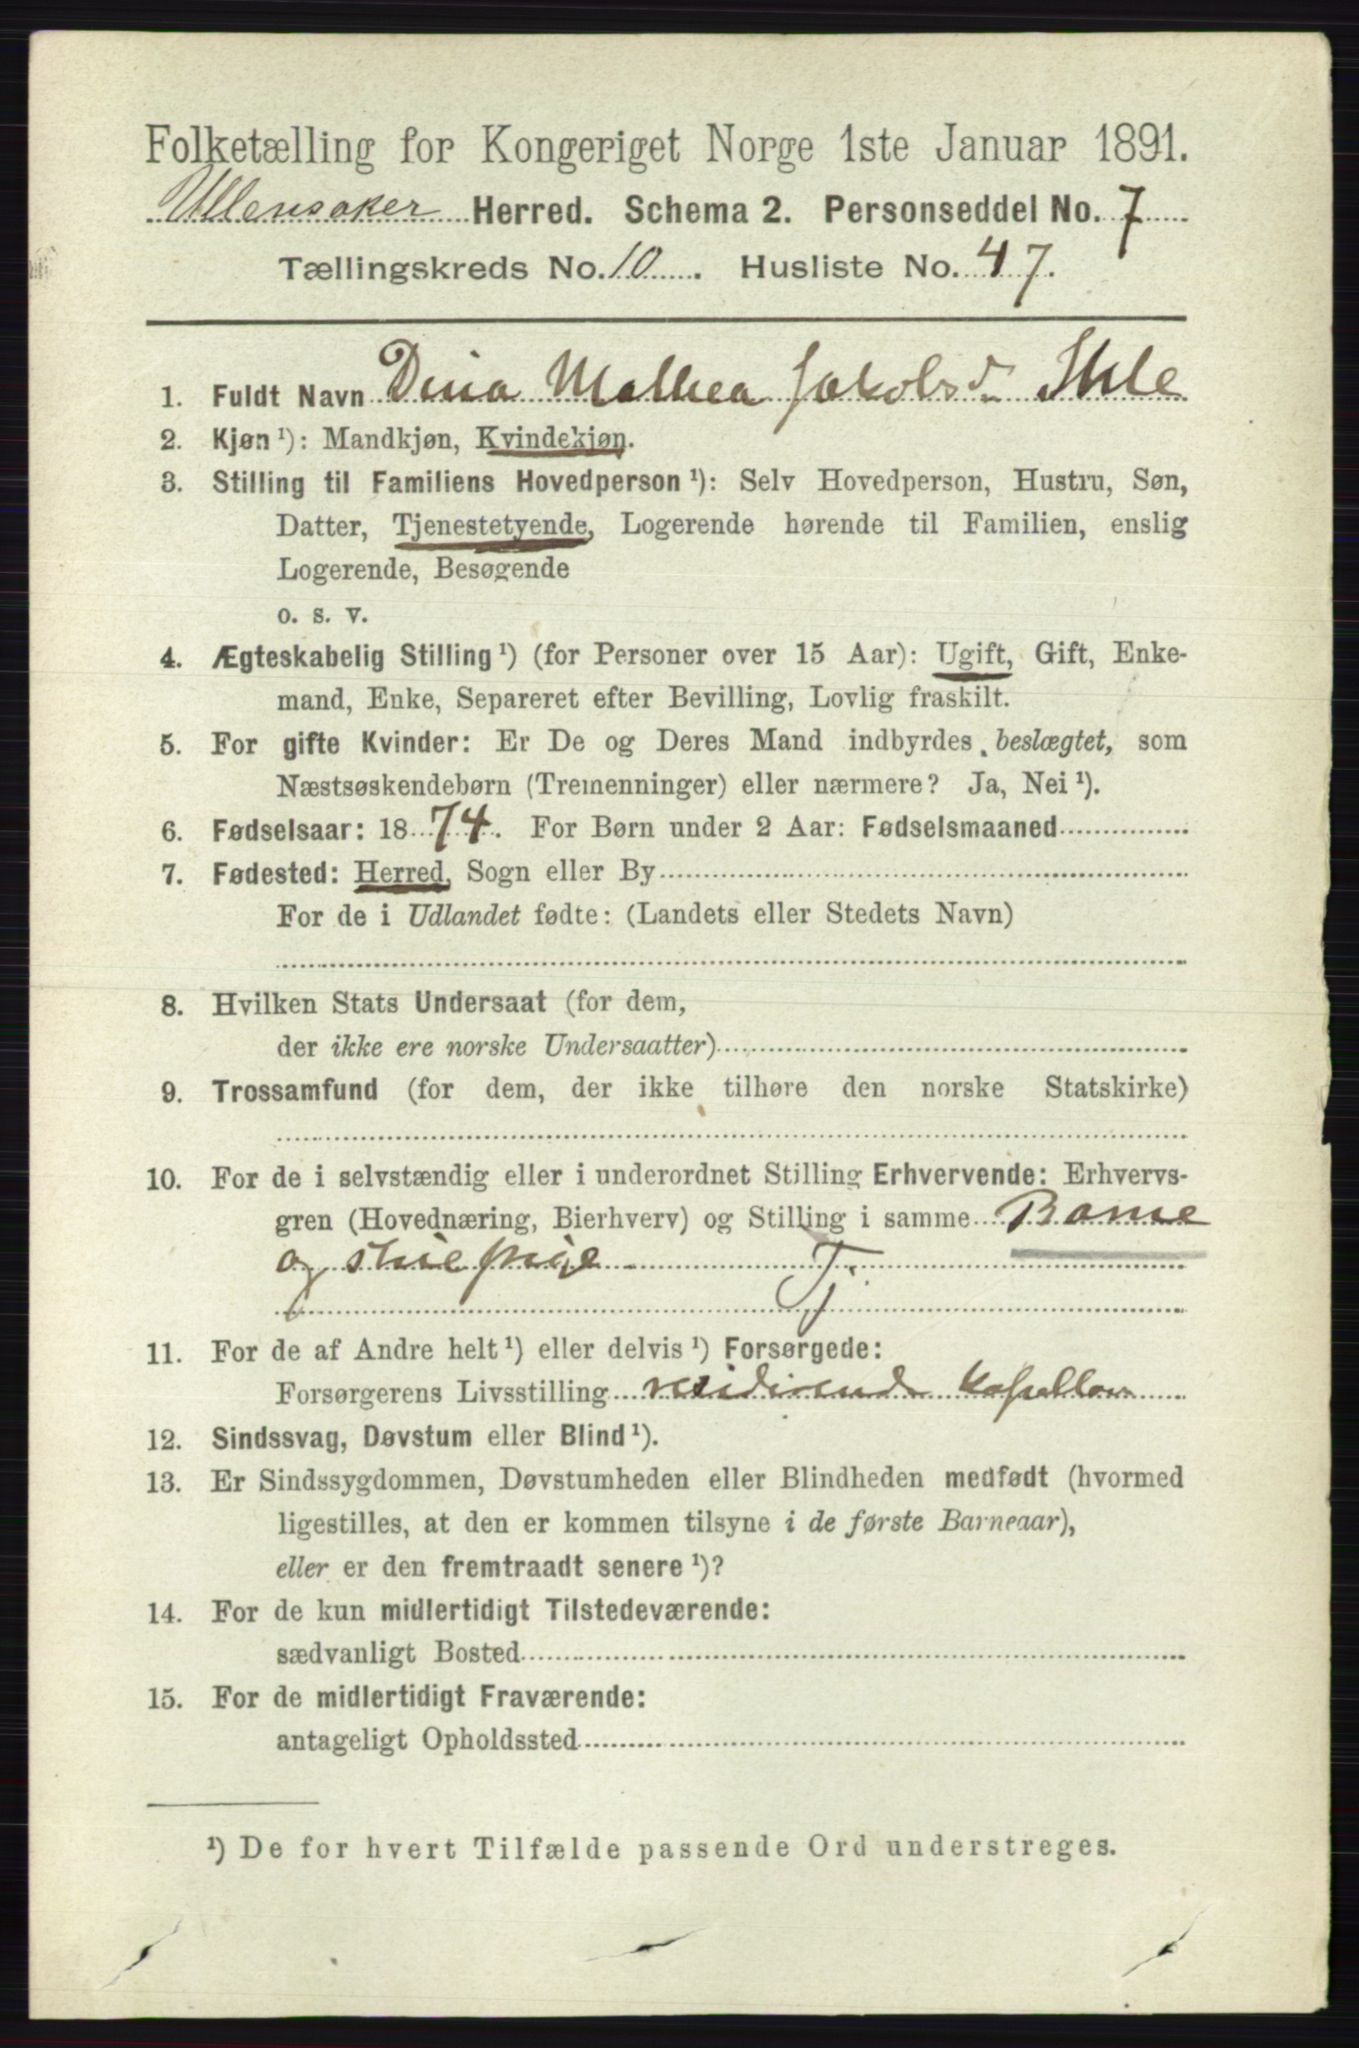 Folketælling for Kongeriget Norge 1ste Januar 1891.
Ullensaker Herred. Schema 2. Personseddel No. 7
Tællingskreds No. 10. Husliste No. 47.
1. Fuldt Navn Dina Mathea Jakobsd.
2. Kjøn ¹): Mandkjøn, Kvindekjøn.
3. Stilling til Familiens Hovedperson ¹): Selv Hovedperson, Hustru, Søn,
Datter, Tjenestetyende, Logerende hørende til Familien, enslig
Logerende, Besøgende
o. s. v.
4. Ægteskabelig Stilling ¹) (for Personer over 15 Aar): Ugift, Gift, Enke-
mand, Enke, Separeret efter Bevilling, Lovlig fraskilt.
5. For gifte Kvinder: Er De og Deres Mand indbyrdes beslægtet, som
Næstsøskendebørn (Tremenninger) eller nærmere? Ja, Nei ¹).
6. Fødselsaar: 1874. For Børn under 2 Aar: Fødselsmaaned
7. Fødested: Herred, Sogn eller By
For de i Udlandet fødte: (Landets eller Stedets Navn)
8. Hvilken Stats Undersaat (for dem,
der ikke ere norske Undersaatter)
9. Trossamfund (for dem, der ikke tilhøre den norske Statskirke)
10. For de i selvstændig eller i underordnet Stilling Erhvervende: Erhvervs-
gren (Hovednæring, Bierhverv) og Stilling i samme Barne
og stuepige Tj
11. For de af Andre helt ¹) eller delvis ¹) Forsørgede:
Forsørgerens Livsstilling residerende kapellan
12. Sindssvag, Døvstum eller Blind ¹).
13. Er Sindssygdommen, Døvstumheden eller Blindheden medfødt (hvormed
ligestilles, at den er kommen tilsyne i de første Barneaar),
eller er den fremtraadt senere ¹)?
14. For de kun midlertidigt Tilstedeværende:
sædvanligt Bosted
15. For de midlertidigt Fraværende:
antageligt Opholdssted
¹) De for hvert Tilfælde passende Ord understreges.